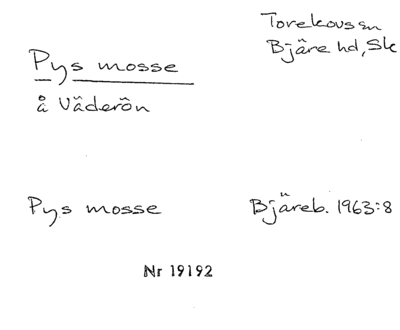 Torekovs sn
Bjäre hd, Sk
Pys mosse
å Väderön
Pys mosse
Bjäreb. 1963:8
Nr 19192